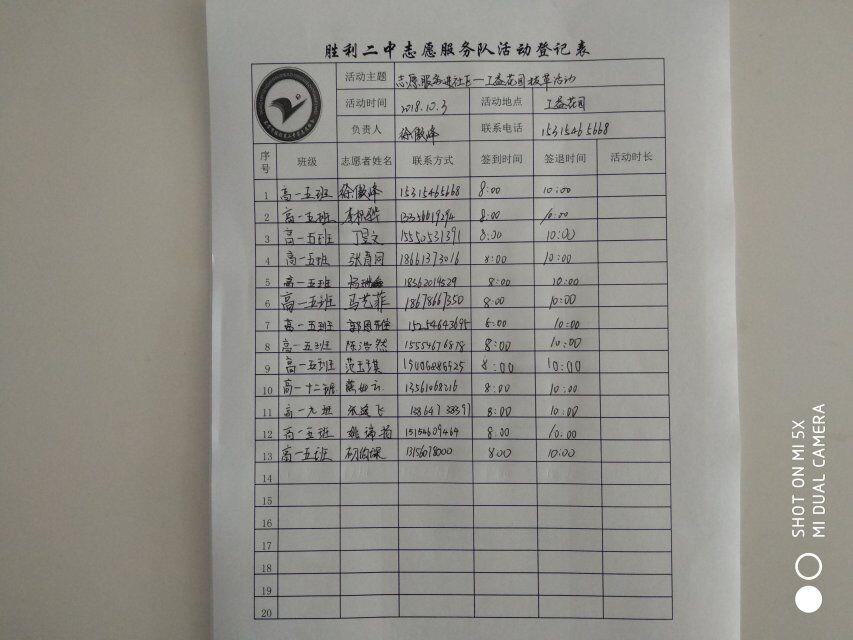 胜利二中志愿服务队活动登记表
活动主题 志愿服务进社区一工益花园拔草活动
活动时间 2018.10.3 活动地点 工益花园
负责人 徐傲峰 联系电话 15315465668
序号 班级 志愿者姓名 联系方式 签到时间 签退时间 活动时长
1 高一五班 徐傲峰 15315465668 8:00 10:00
2 高一五班 8:00 10:00
3 高一五班 丁昱文 15550531391 8:00 10:00
4 高一五班 张育同 18661373016 8:00 10:00
5 高一五班 18562019529 8:00 10:00
6 高一五班 马艺菲 18678667350 8:00 10:00
7 高一五班 15254643695 8:00 10:00
8 高一五班 陈浩然 15554676878 8:00 10:00
9 高一五班 范玉琪 8:00 10:00
10 高一十二班 13561068216 8:00 10:00
11 高一九班 张远飞 13864738397 8:00 10:00
12 高一五班 15154609464 8:00 10:00
13 高一五班 8:00 10:00
14
15
16
17
18
19
20
SHOT ON MI 5X
MI DUAL CAMERA